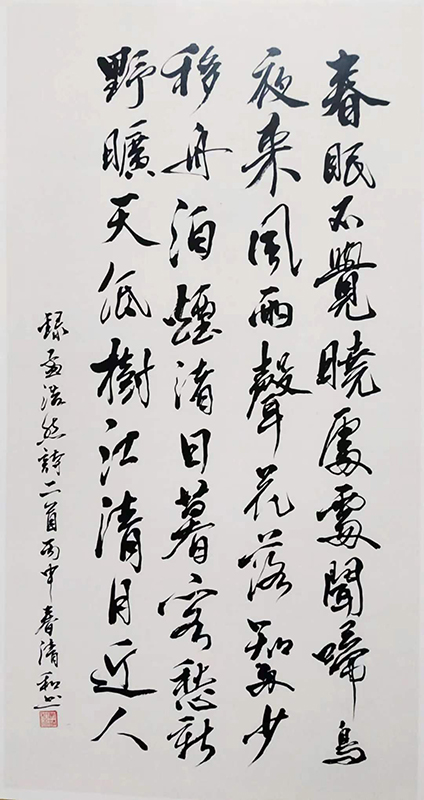 春眠不覺曉處處聞啼鳥
夜来風雨聲花落知多少
移舟泊煙渚日暮客愁新
野曠天低樹江清月近人
録孟浩然詩二首丙申春清和